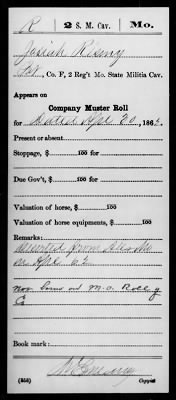 R 2 S. M. Cav. Mo.
Josiah
, Co. F, 2 Reg't Mo. State Militia Cav.
Appears on
Company Muster Roll
for Dated Apl 30, 186
Present or absent
Stoppage, $ 100 for
Due Gov't, $ 100 for
Valuation of horse, $ 100
Valuation of horse equipments, $ 100
Remarks:
Deserted from
on Apl 62
on M.O. Roll of
Co
Book mark:
(356) Copyist